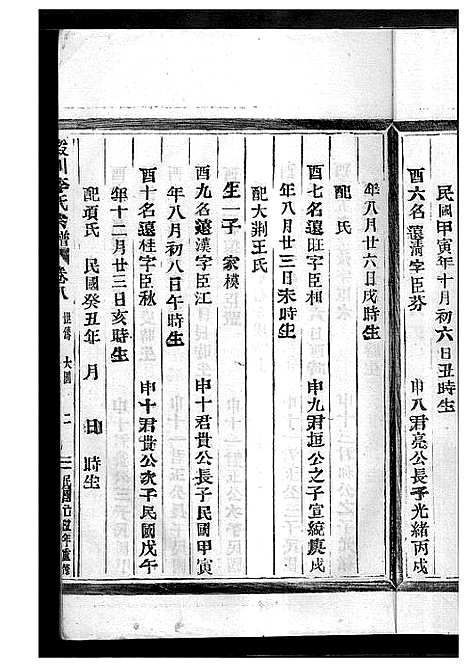 民國甲寅年十月初六日丑時生
酉六名遠清字臣芬　申八君亮公長子光緒丙戌
年八月廿六日戌時生
配　氏
酉七名遠旺字臣和　申九君垣公之子宣統庚戌
年八月廿三日未時生
配大荆王氏
生一子　家模
酉九名遠漢字臣江　申十君貴公長子民國甲寅
年八月初八日午時生
酉十名遠桂字臣秋　申十君貴公次子民國戊午
年十二月廿三日亥時生
配項氏　民國癸丑年　月　日　時生
川李氏宗譜　卷八　世傳　大園　二　民國　年重修